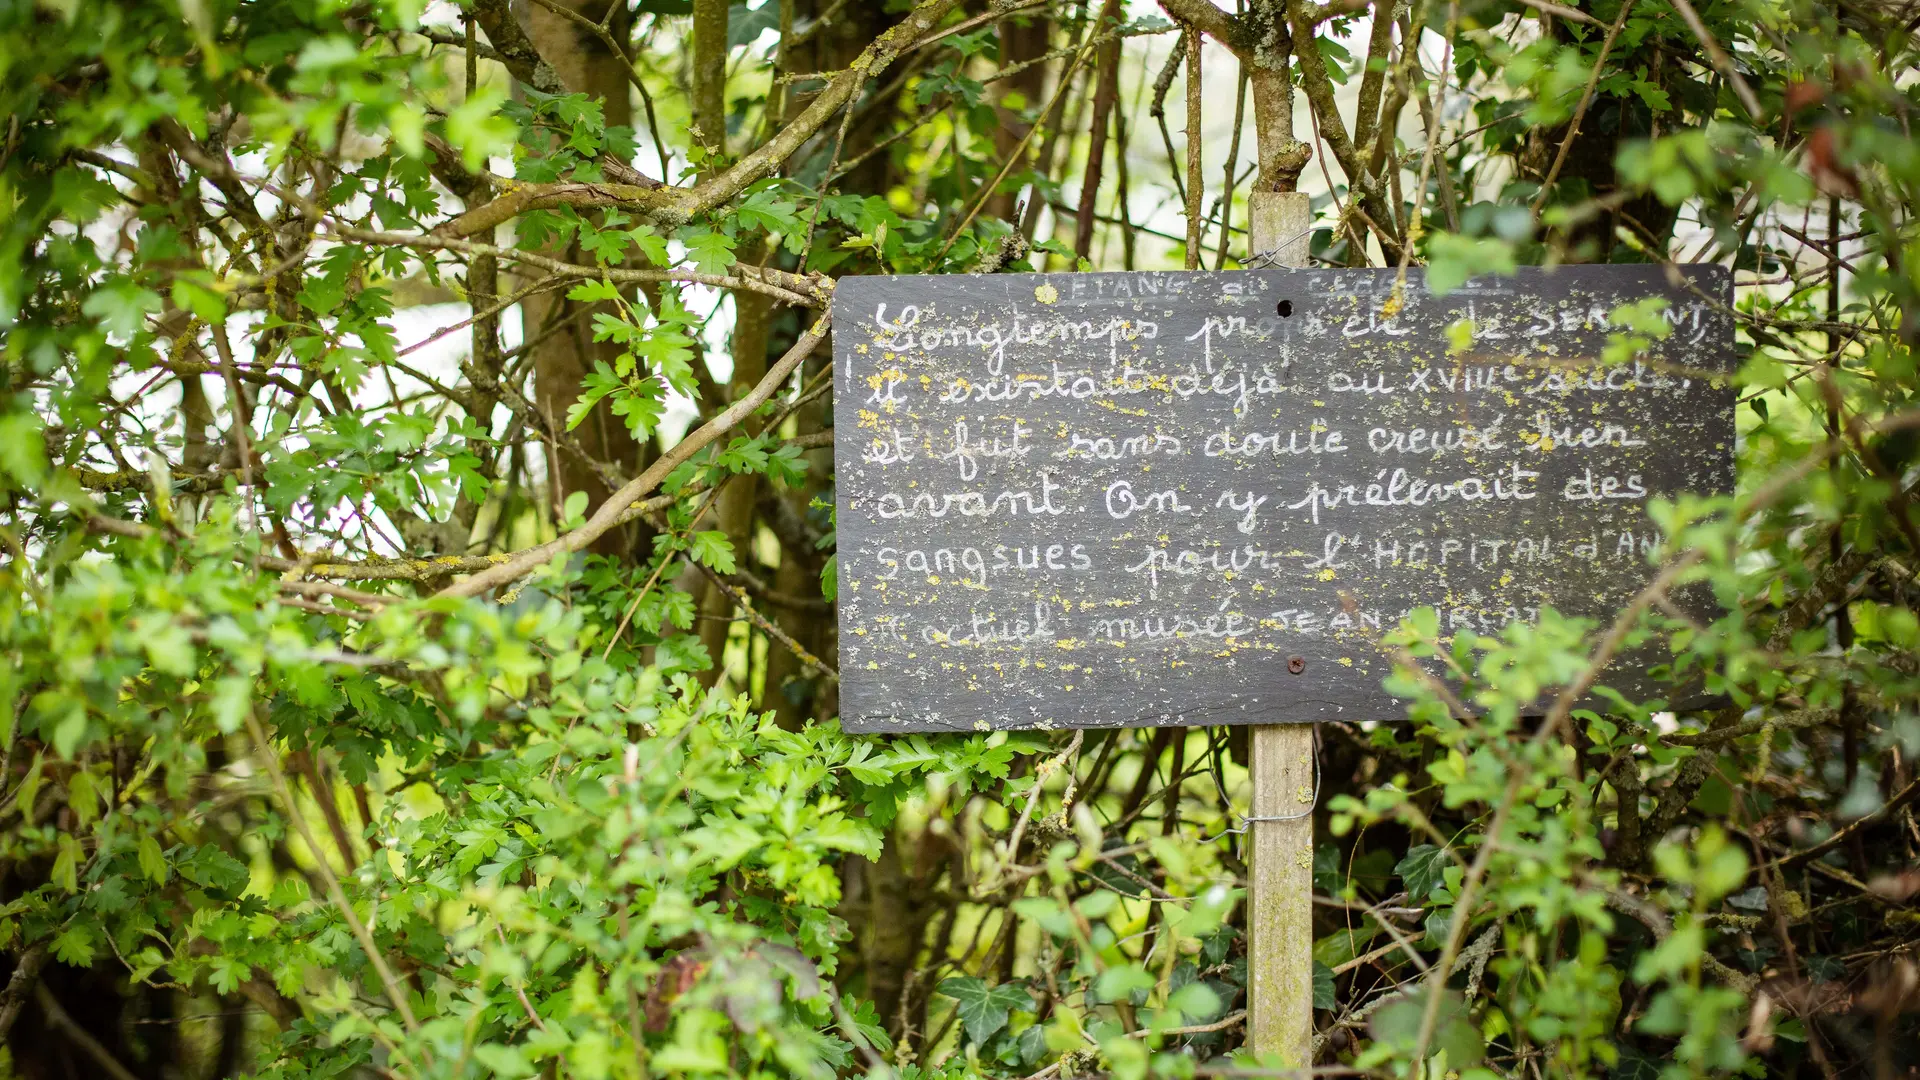 ETANG
Longtemps propriété de SERRANT,
il existait déjà au XVIIIe siècle,
et fut sans doute creusé bien
avant. On y prélevait des
sangsues pour l'HOPITAL d'AN
actuel musée JEAN LURCAT